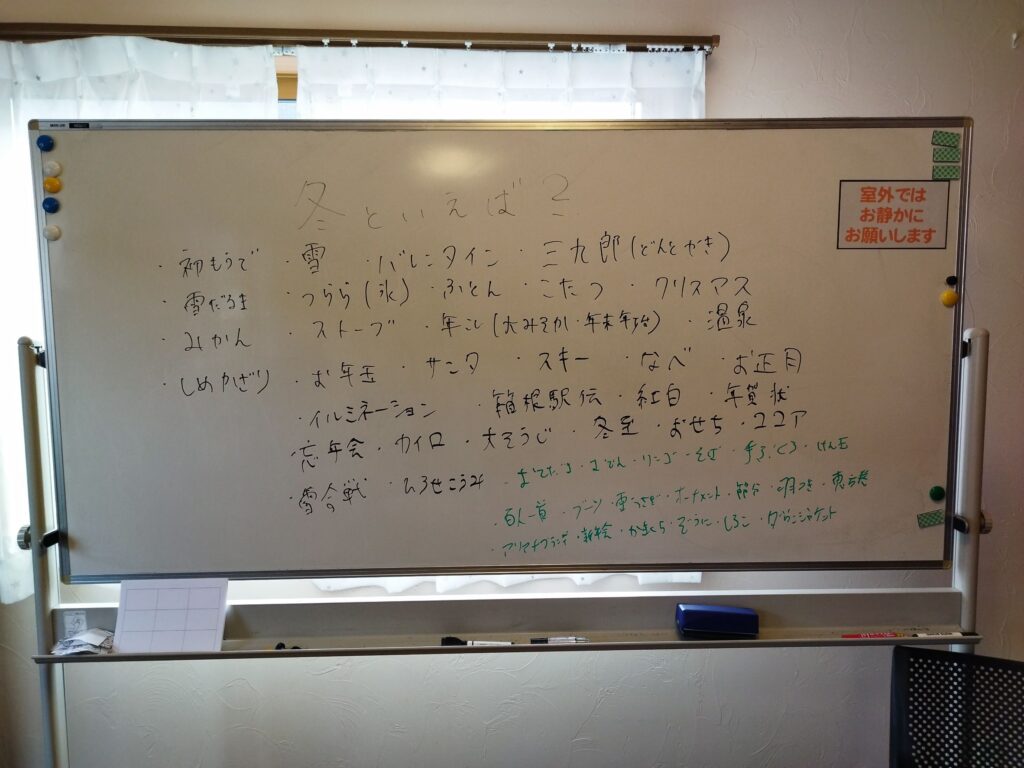 冬といえば?
・初もうで ・雪 ・バレンタイン ・三九郎(どんどやき)
・雪だるま ・つらら(氷) ・ふとん ・こたつ ・クリスマス
・みかん ・ストーブ ・年こし(大みそか・年末年始) ・温泉
・しめかざり ・お年玉 ・サンタ ・スキー ・なべ ・お正月
・イルミネーション ・箱根駅伝 ・紅白 ・年賀状
・忘年会 ・カイロ ・大そうじ ・冬至 ・おせち ・ココア
・雪合戦 ・おでん ・リンゴ ・そば ・手ぶくろ ・けん玉
・百人一首 ・ブーツ ・雪うさぎ ・オーナメント ・節分 ・羽つき ・恵方巻
・新年会 ・かまくら ・ぞうに ・しるこ ・ダウンジャケット
室外では
お静かに
お願いします